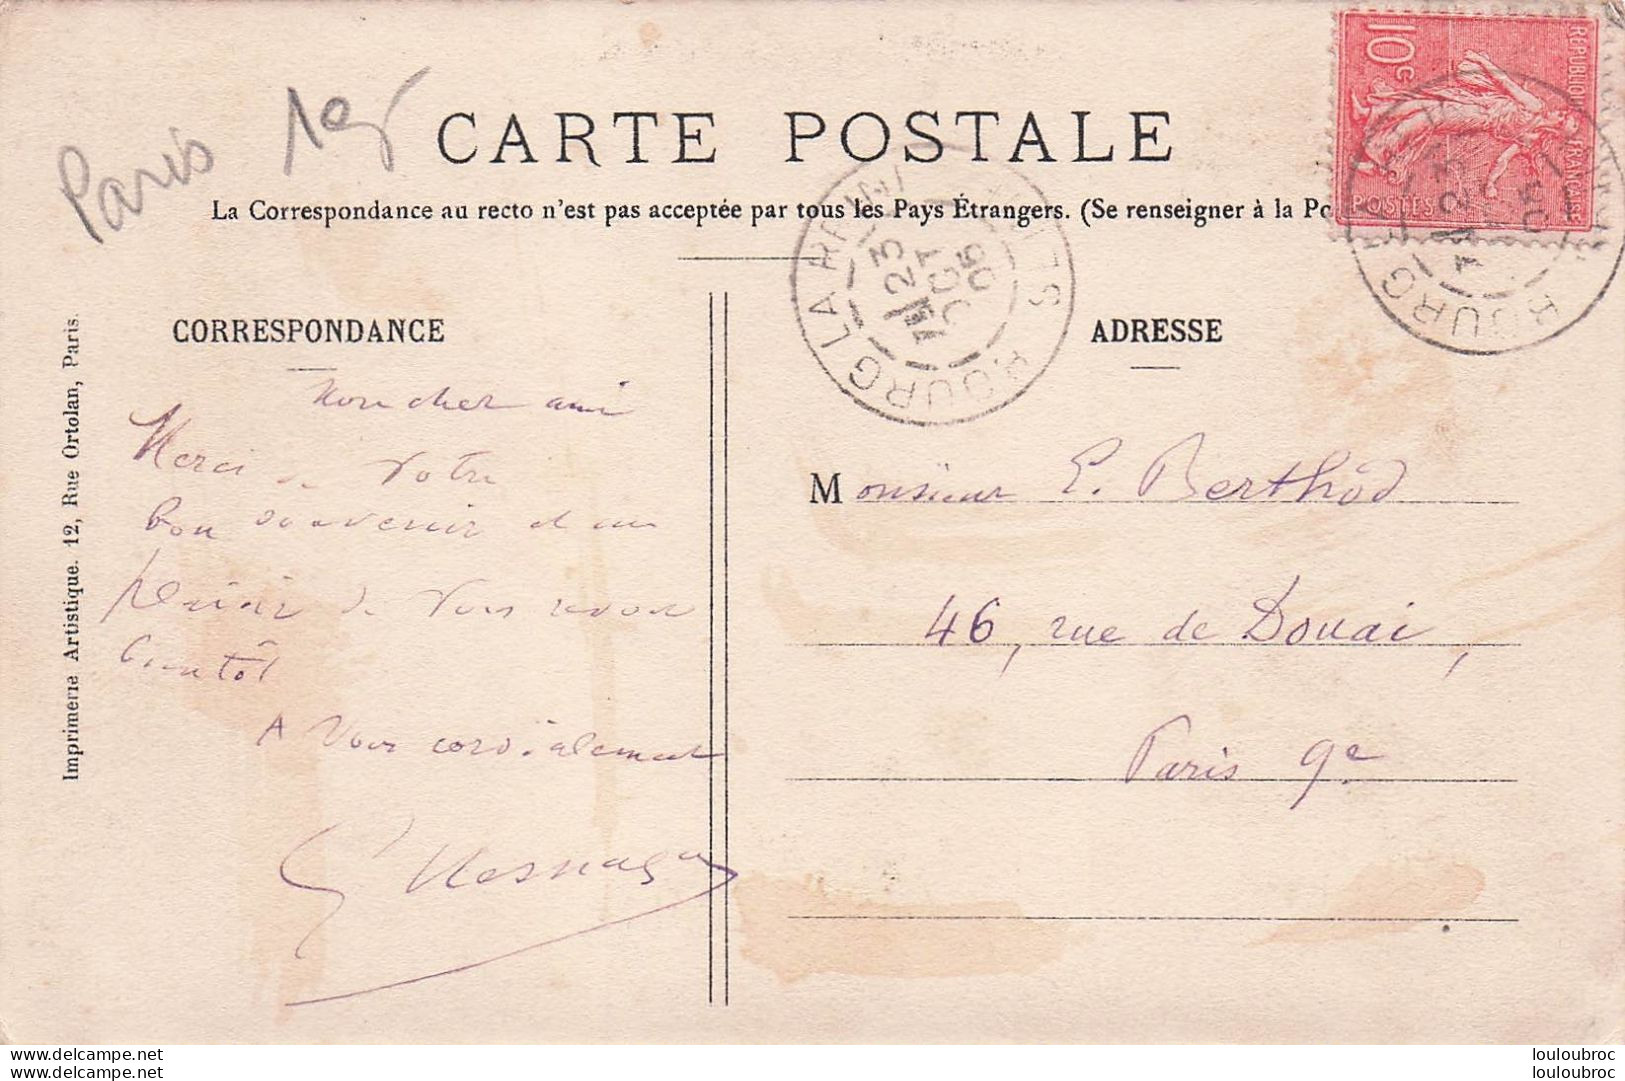 Paris 19e
CARTE POSTALE
La Correspondance au recto n'est pas acceptée par tous les Pays Étrangers. (Se renseigner à la Po
RÉPUBLIQUE FRANÇAISE
10c
POSTES
BOURG LA REINE
23 OCT 05
BOURG LA
23
05
CORRESPONDANCE
ADRESSE
Imprimerie Artistique. 12, Rue Ortolan, Paris.
Mon cher ami
Merci de Votre
bon souvenir et au
plaisir de Vous revoir
bientôt
A Vous cordialement
Monsieur E. Berthod
46, rue de Douai,
Paris 9e
www.delcampe.net
www.delcampe.net
louloubroc
louloubroc